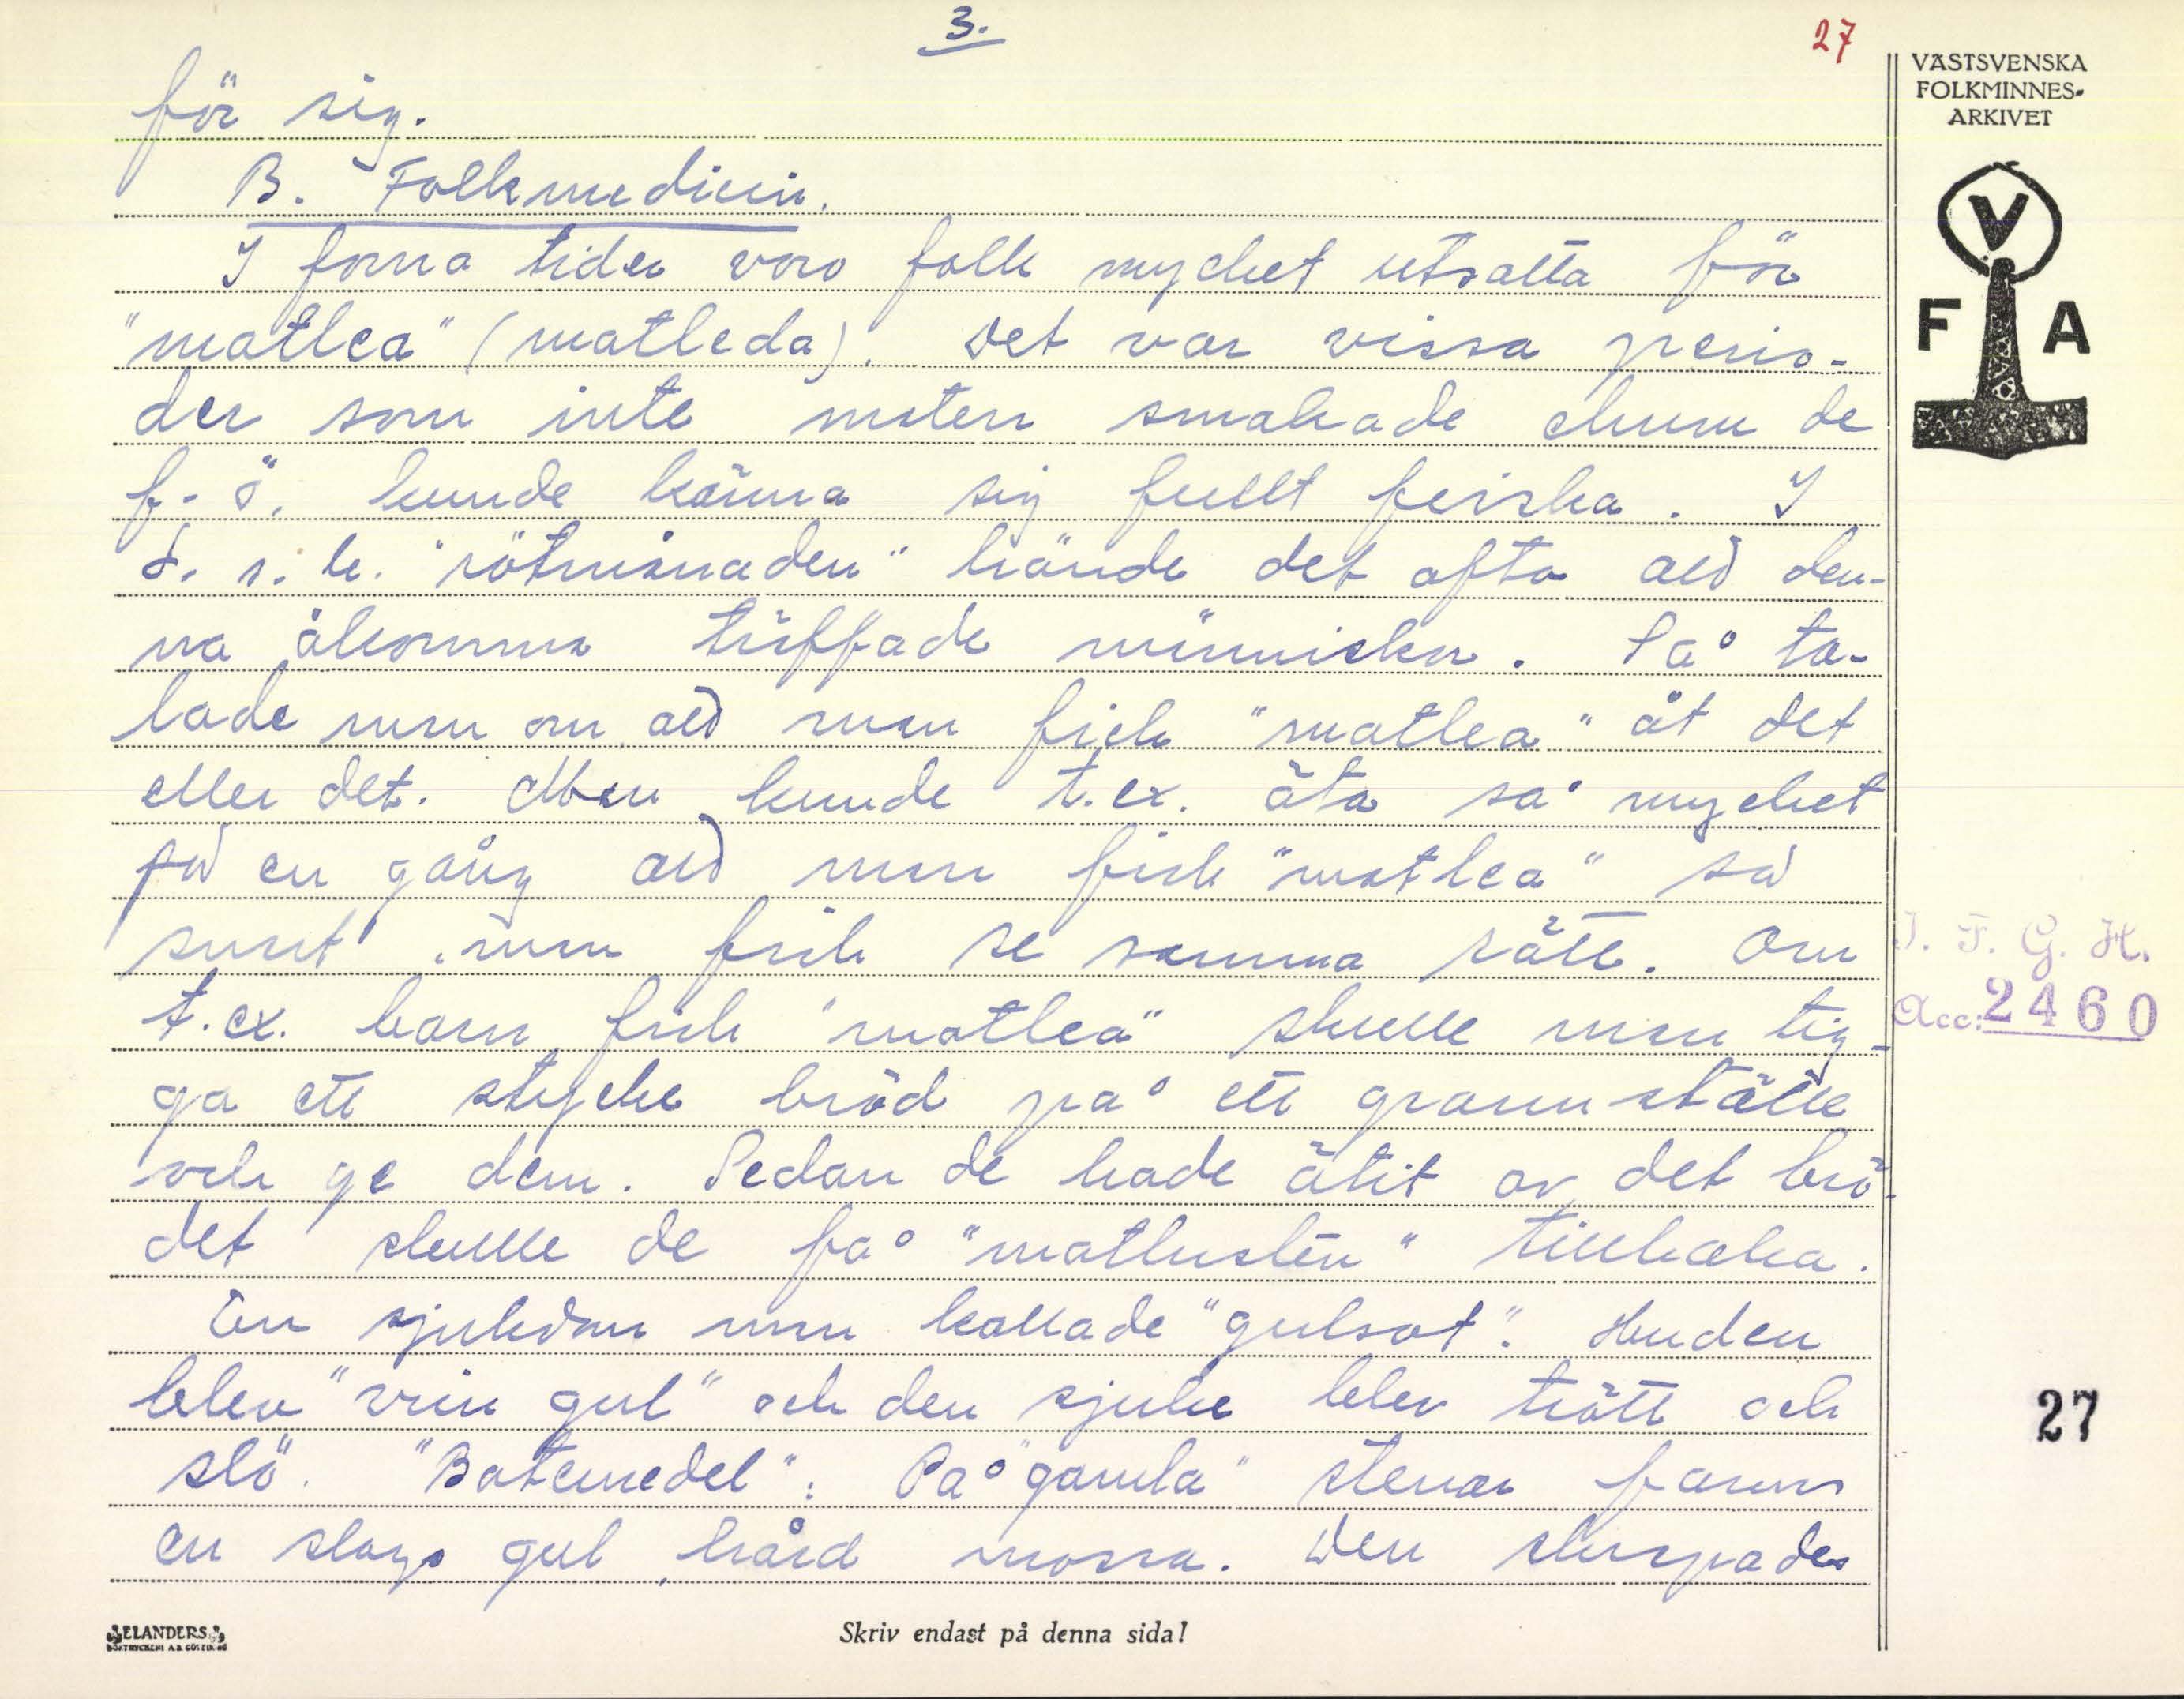 3.
27
för sig.
B. Folkmedicin.
I forna tider voro folk mycket utsatta för
"matlea" (matleda). Det var vissa perio-
der som inte maten smakade ehuru de
f. ö. kunde känna sig fullt friska. I
d. s. k. "rötmånaden" hände det ofta att den-
na åkomma träffade människor. Så ta-
lade man om att man fick "matlea" åt det
eller det. Man kunde t.ex. äta så mycket
på en gång att man fick "matlea" så
snart man fick se samma rätt. Om
t.ex. barn fick "matlea" skulle man tig-
ga ett stycke bröd på ett grannställe
och ge dem. Sedan de hade ätit av det brö-
det skulle de få "matlusten" tillbaka.
En sjukdom man kallade "gulsot". Huden
blev "vrin gul" och den sjuke blev trött och
slö. "Botemedel": På "gamla" stenar fanns
en slags gul hård mossa. Den skrapades
VÄSTSVENSKA
FOLKMINNES-
ARKIVET
V
F A
I. F. G. H.
Acc: 2460
27
ELANDERS
BOKTRYCKERI A.B. GÖTEBORG
Skriv endast på denna sida!